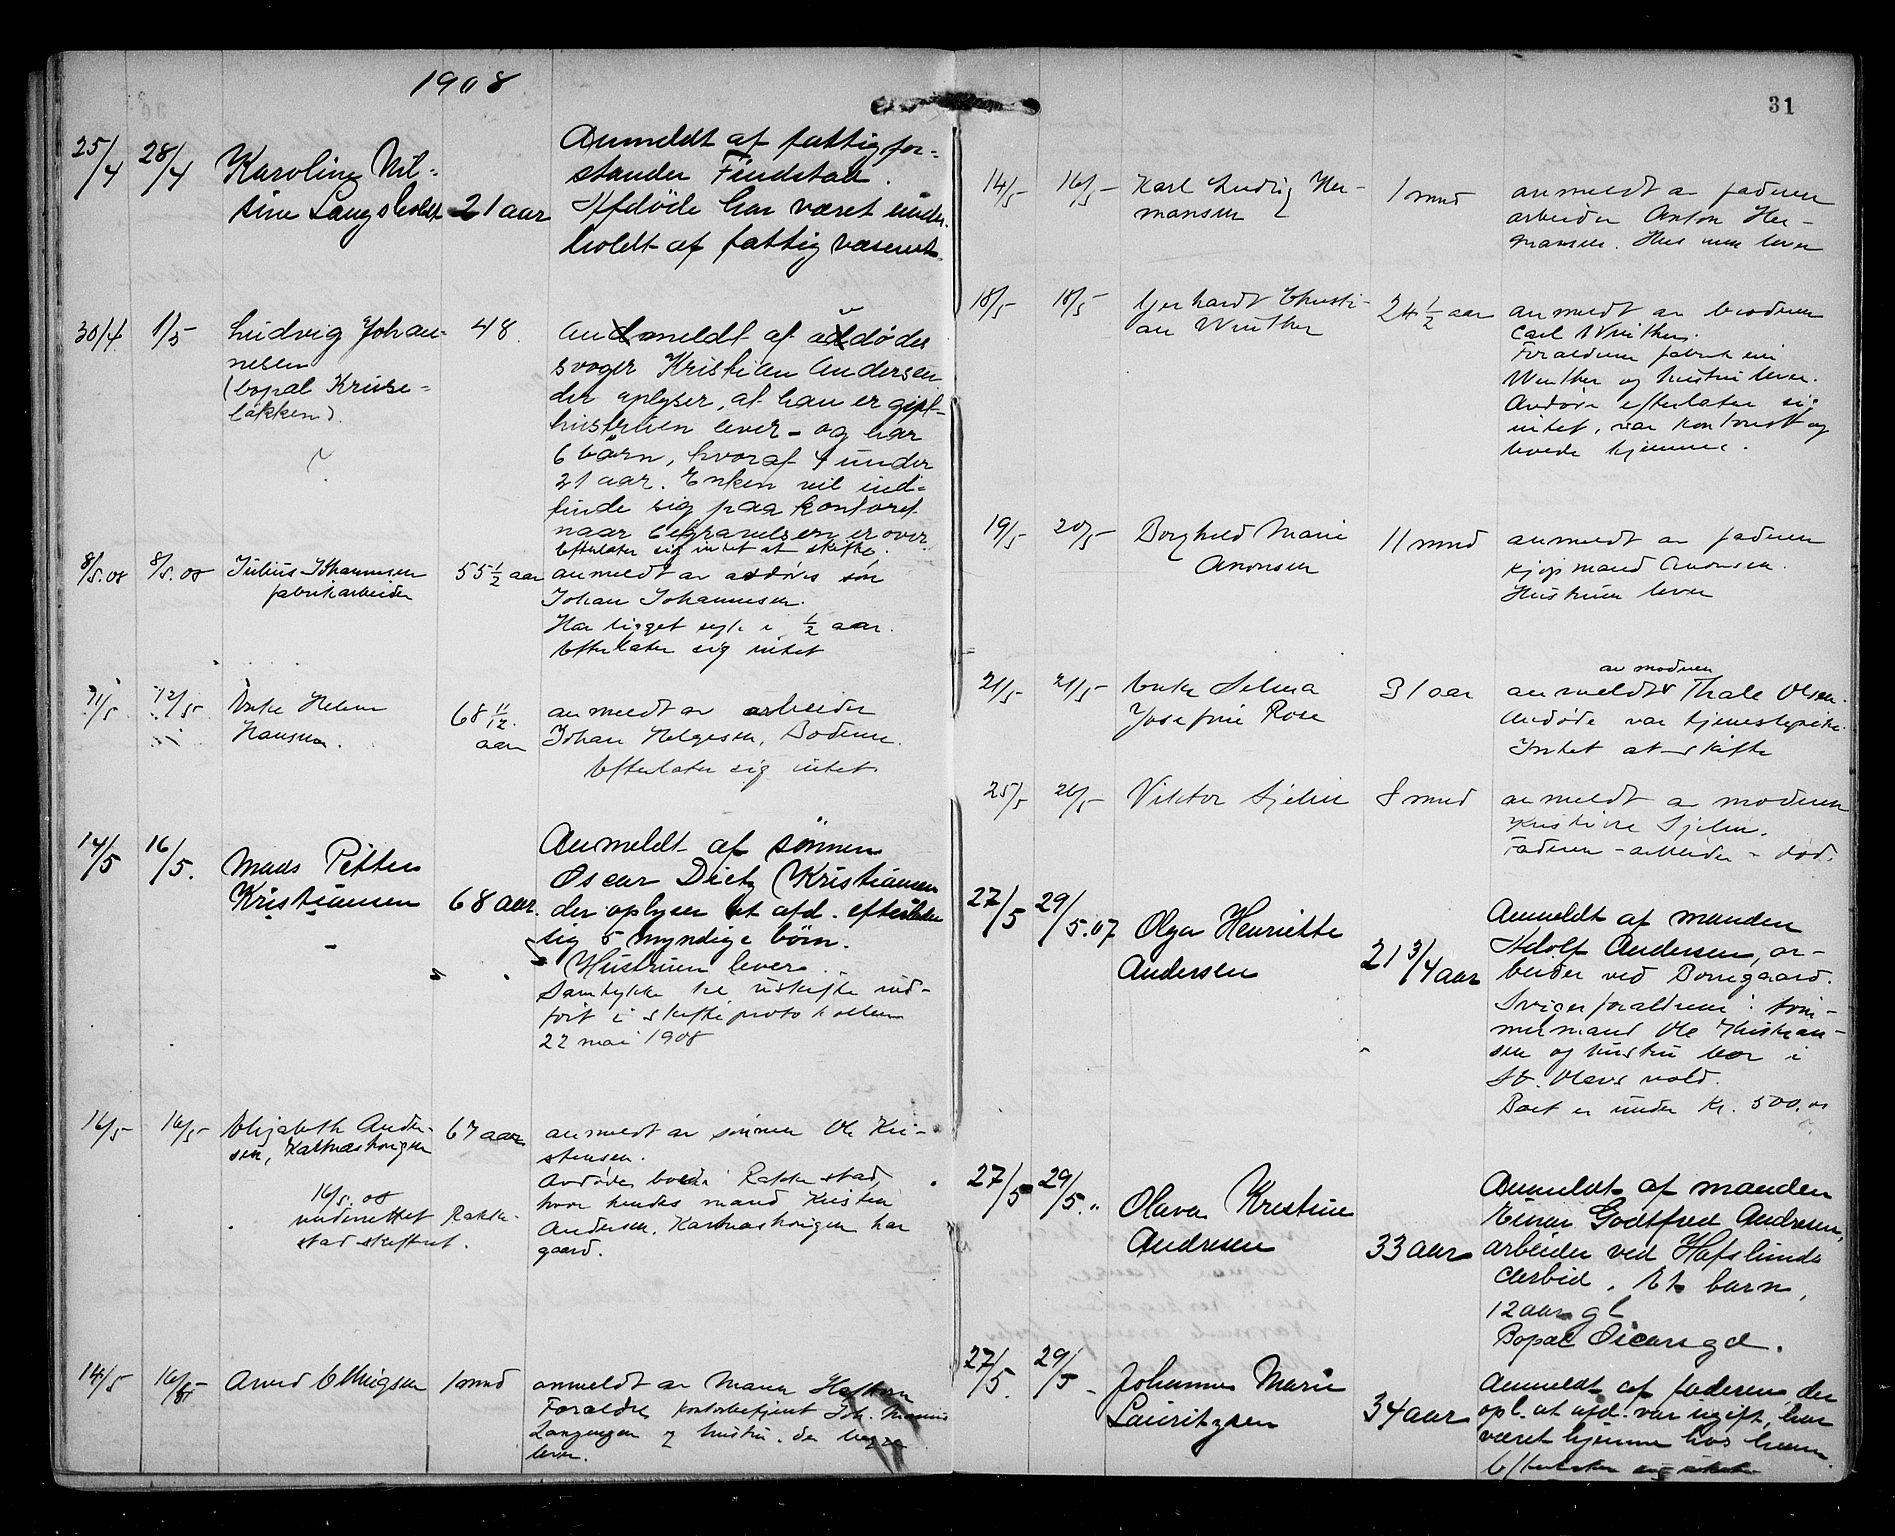 1908
25/4 28/4 Karoline Nil-
sine Langsholdt 21 aar
Anmeldt af fattigfor-
stander Findstad.
Afdöde har været under-
holdt af fattigvæsenet.
30/4 1/5 Ludvig Johan-
nesen
(bopæl Kruse-
løkken).
48.
Andmeldt af addødes
svoger Kristian Andersen
der oplyser, at han er gift-
hustruen lever - og har
6 børn, hvoraf 4 under
21 aar. Enken vil ind-
finde sig paa kontoret
naar begravelsen er over.
Efterlater sig intet at skifte.
8/5.08 8/5.08 Julius Johannesen
fabrikarbeider
55 1/2 aar
anmeldt av avdödes søn
Johan Johannesen.
Har ligget syk i 1/2 aar.
Efterlater sig intet
11/5 12/5 Enke Helene
Hansen.
68 11/12.
aar
anmeldt av arbeider
Johan Helgesen,
Efterlater sig intet.
14/5 16/5. Mads Petter
Kristiansen
68 aar.
Anmeldt af sønnen
Oscar Dietz Kristiansen
der oplyser at afd. efterlader
sig 5 myndige børn.
Hustruen lever.
Samtykke til uskifte ind-
fört i skifteprotokollen
22 mai 1908
16/5 16/5 Elisabeth Ander-
sen,
67 aar
16/5.08
underrettet Rakke-
stad skifteret.
anmeldt av sønnen Ole Kri-
stensen.
Avdöde bodde i Rakkestad,
hvor hendes mand Kristian
Andersen, har
gaard.
14/5 16/5 Arvid Ellingsen 1 mnd
anmeldt av
Forældre kontorbetjent Joh.
og hustru. der begge
lever.
31
14/5 16/5 Karl Ludvig Her-
mansen
1 mnd
anmeldt av faderen
arbeider Anton Her-
mansen. Hustruen lever
18/5 18/5 Gerhardt Christi-
an Winther
24 1/2 aar
anmeldt av broderen
Carl Winther.
Forældrene
Winther og hustru lever.
Avdöde efterlater sig
intet, var kontorist og
boede hjemme.
19/5 20/5 Borghild Marie
Aronsen
11 mnd
anmeldt av faderen
kjøpmand Aronsen.
Hustruen lever
21/5 21/5 Enke Selma
Josefine Rose
31 aar
av moderen
anmeldt Thale Olsen.
Avdöde var tjenestepike.
Intet at skifte
25/5 26/5 Viktor Sjelin 8 mnd
anmeldt av moderen
Kristine Sjelin.
Faderen - arbeider - död.
27/5 29/5.07 Olga Henriette
Andersen
21 3/4 aar
Anmeldt af manden
Adolf Andersen, ar-
beider ved Borregaard.
Svigerforældrene: töm-
mermand Ole Kristian-
sen og hustru bor i
St. Olavs vold.
Boet er under Kr. 500.00
27/5 29/5. " Olava Kristine
Andresen
33 aar
Anmeldt af manden
Einar Godtfred Andresen,
arbeider ved Hafslunds
Carbid. Et barn,
12 aar gl
Bopæl
27/5. 29/5 - Johannes Marie
Lauritzsen
34 aar
Anmeldt af faderen, der
opl. at afd. var ugift, har
været hjemme hos ham.
Efterlater sig intet